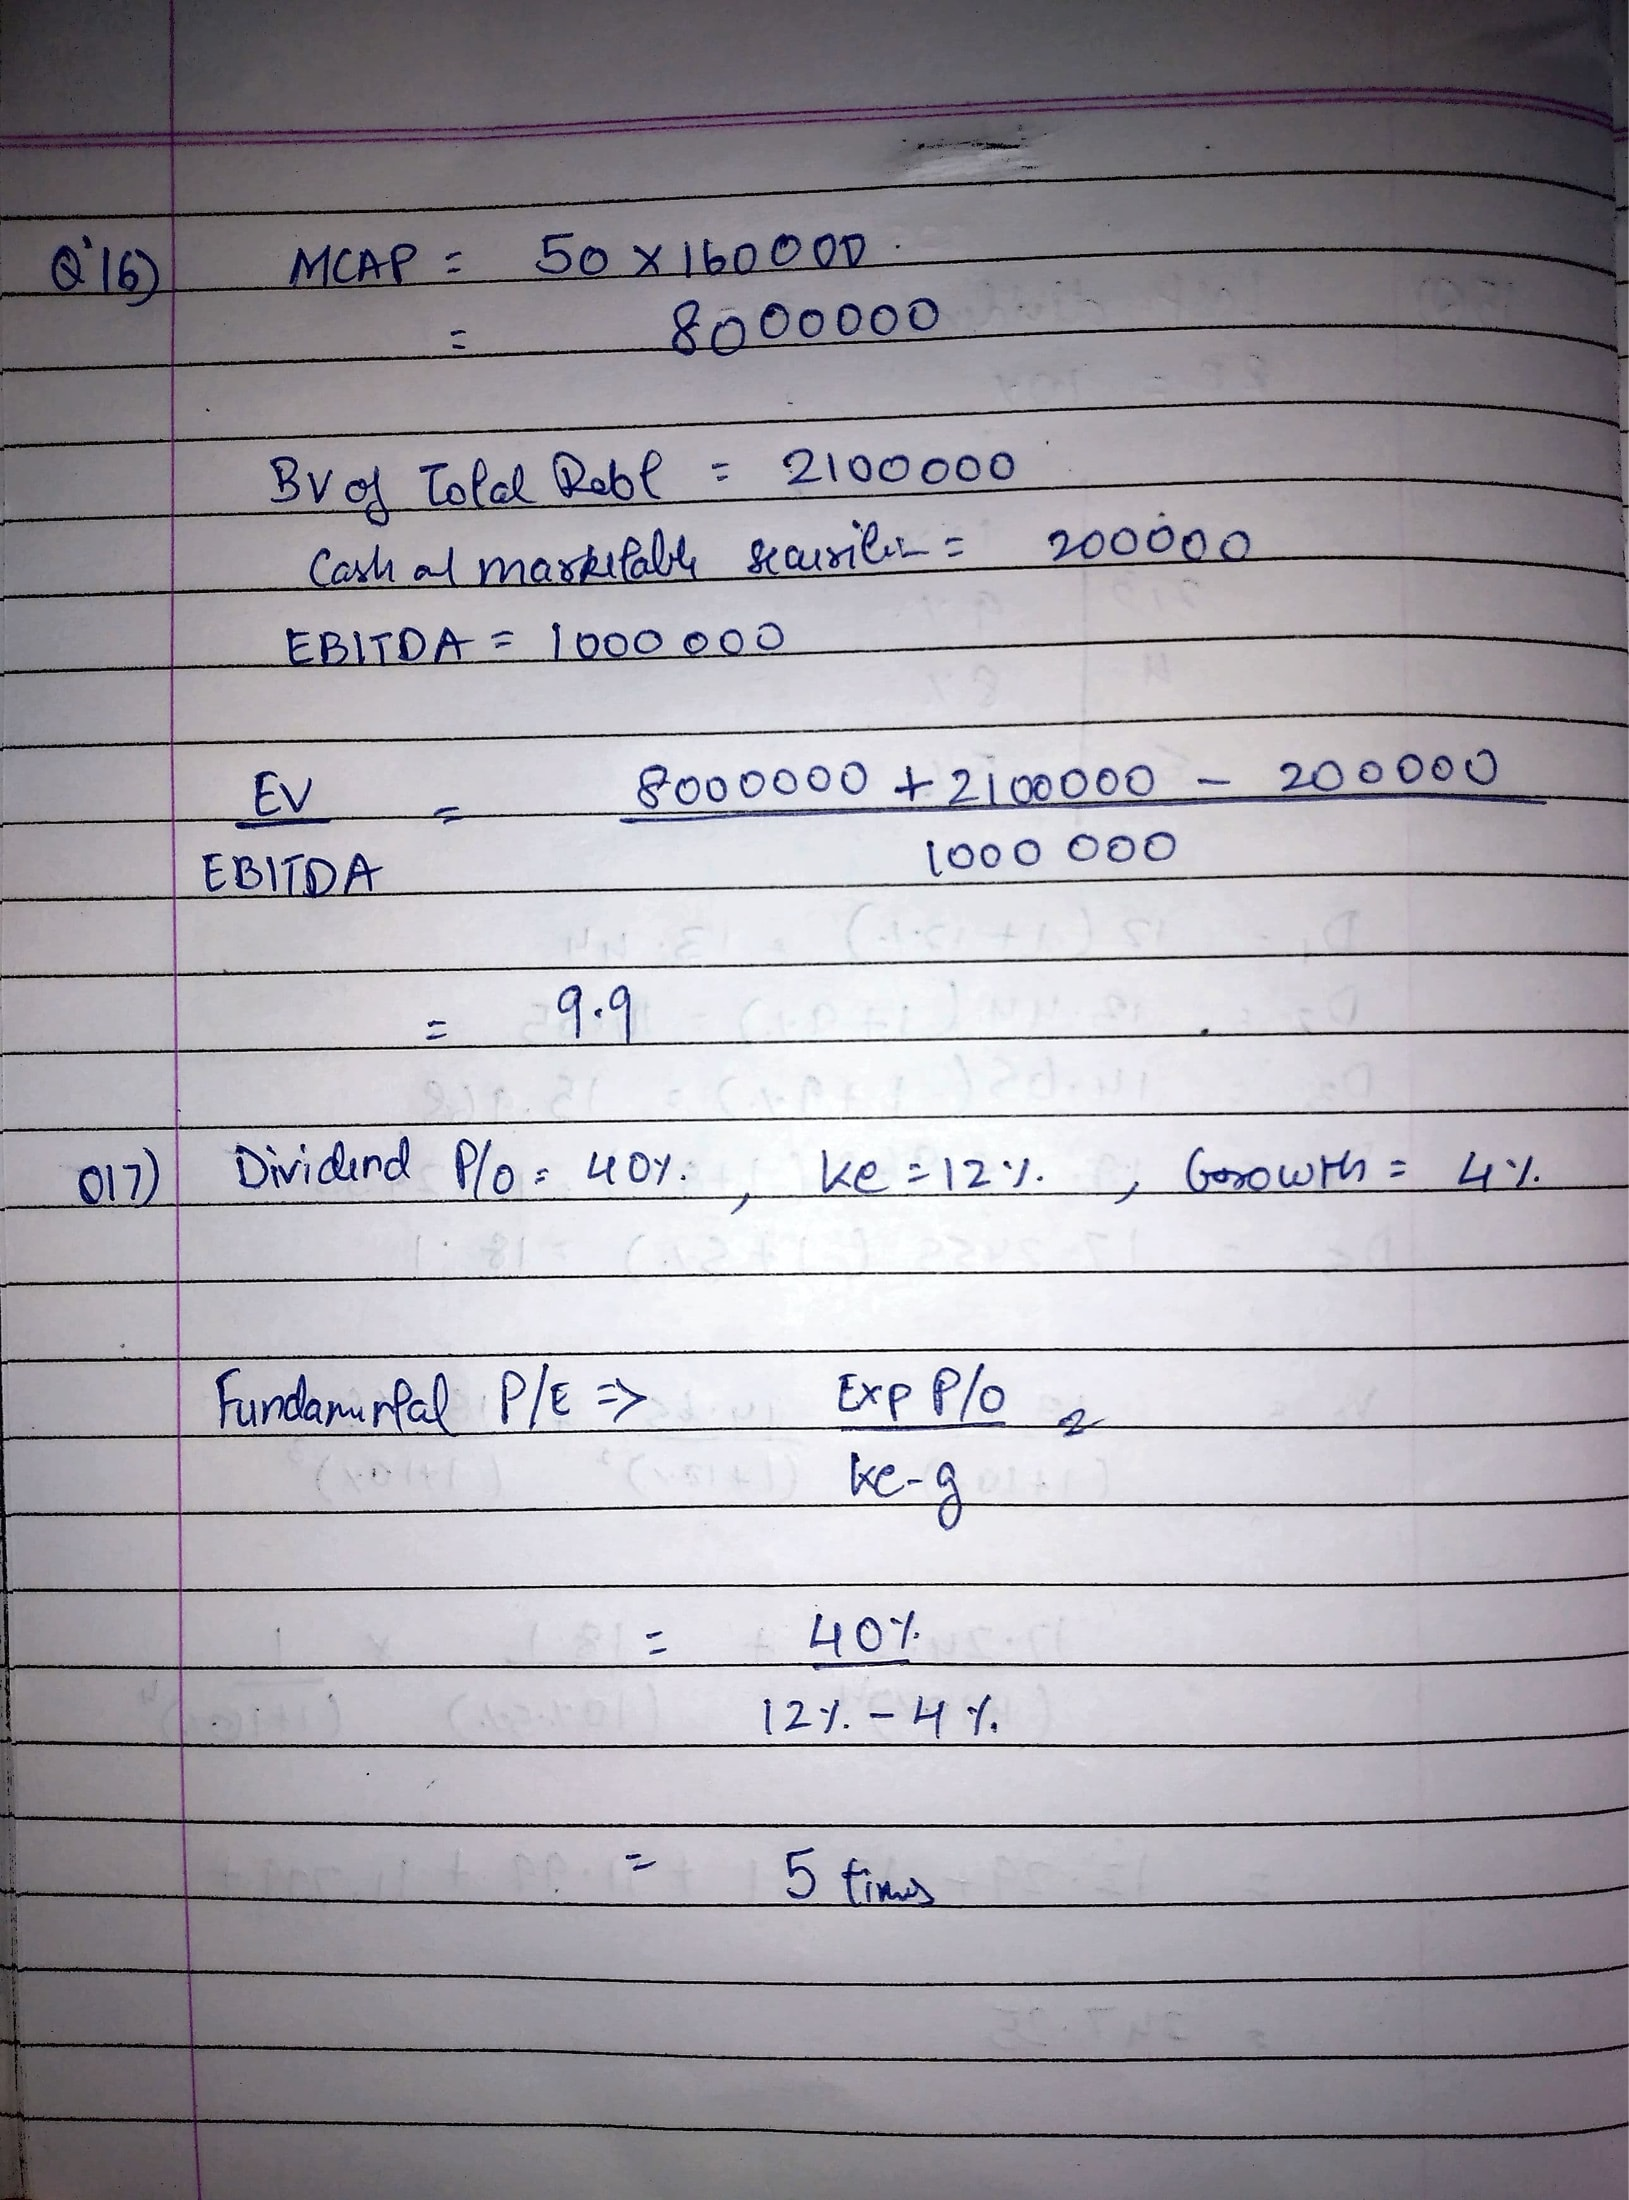 Q'16) MCAP = 50 x 160000
= 8000000
BV of Total Debt = 2100000
Cash and marketable securities = 200000
EBITDA = 1000 000
EV / EBITDA = 8000000 + 2100000 - 200000 / 1000 000
= 9.9
Q17) Dividend P/o = 40%. , ke = 12%. , Growth = 4%.
Fundamental P/E => Exp P/o / ke-g =
= 40% / 12%. - 4%.
= 5 times